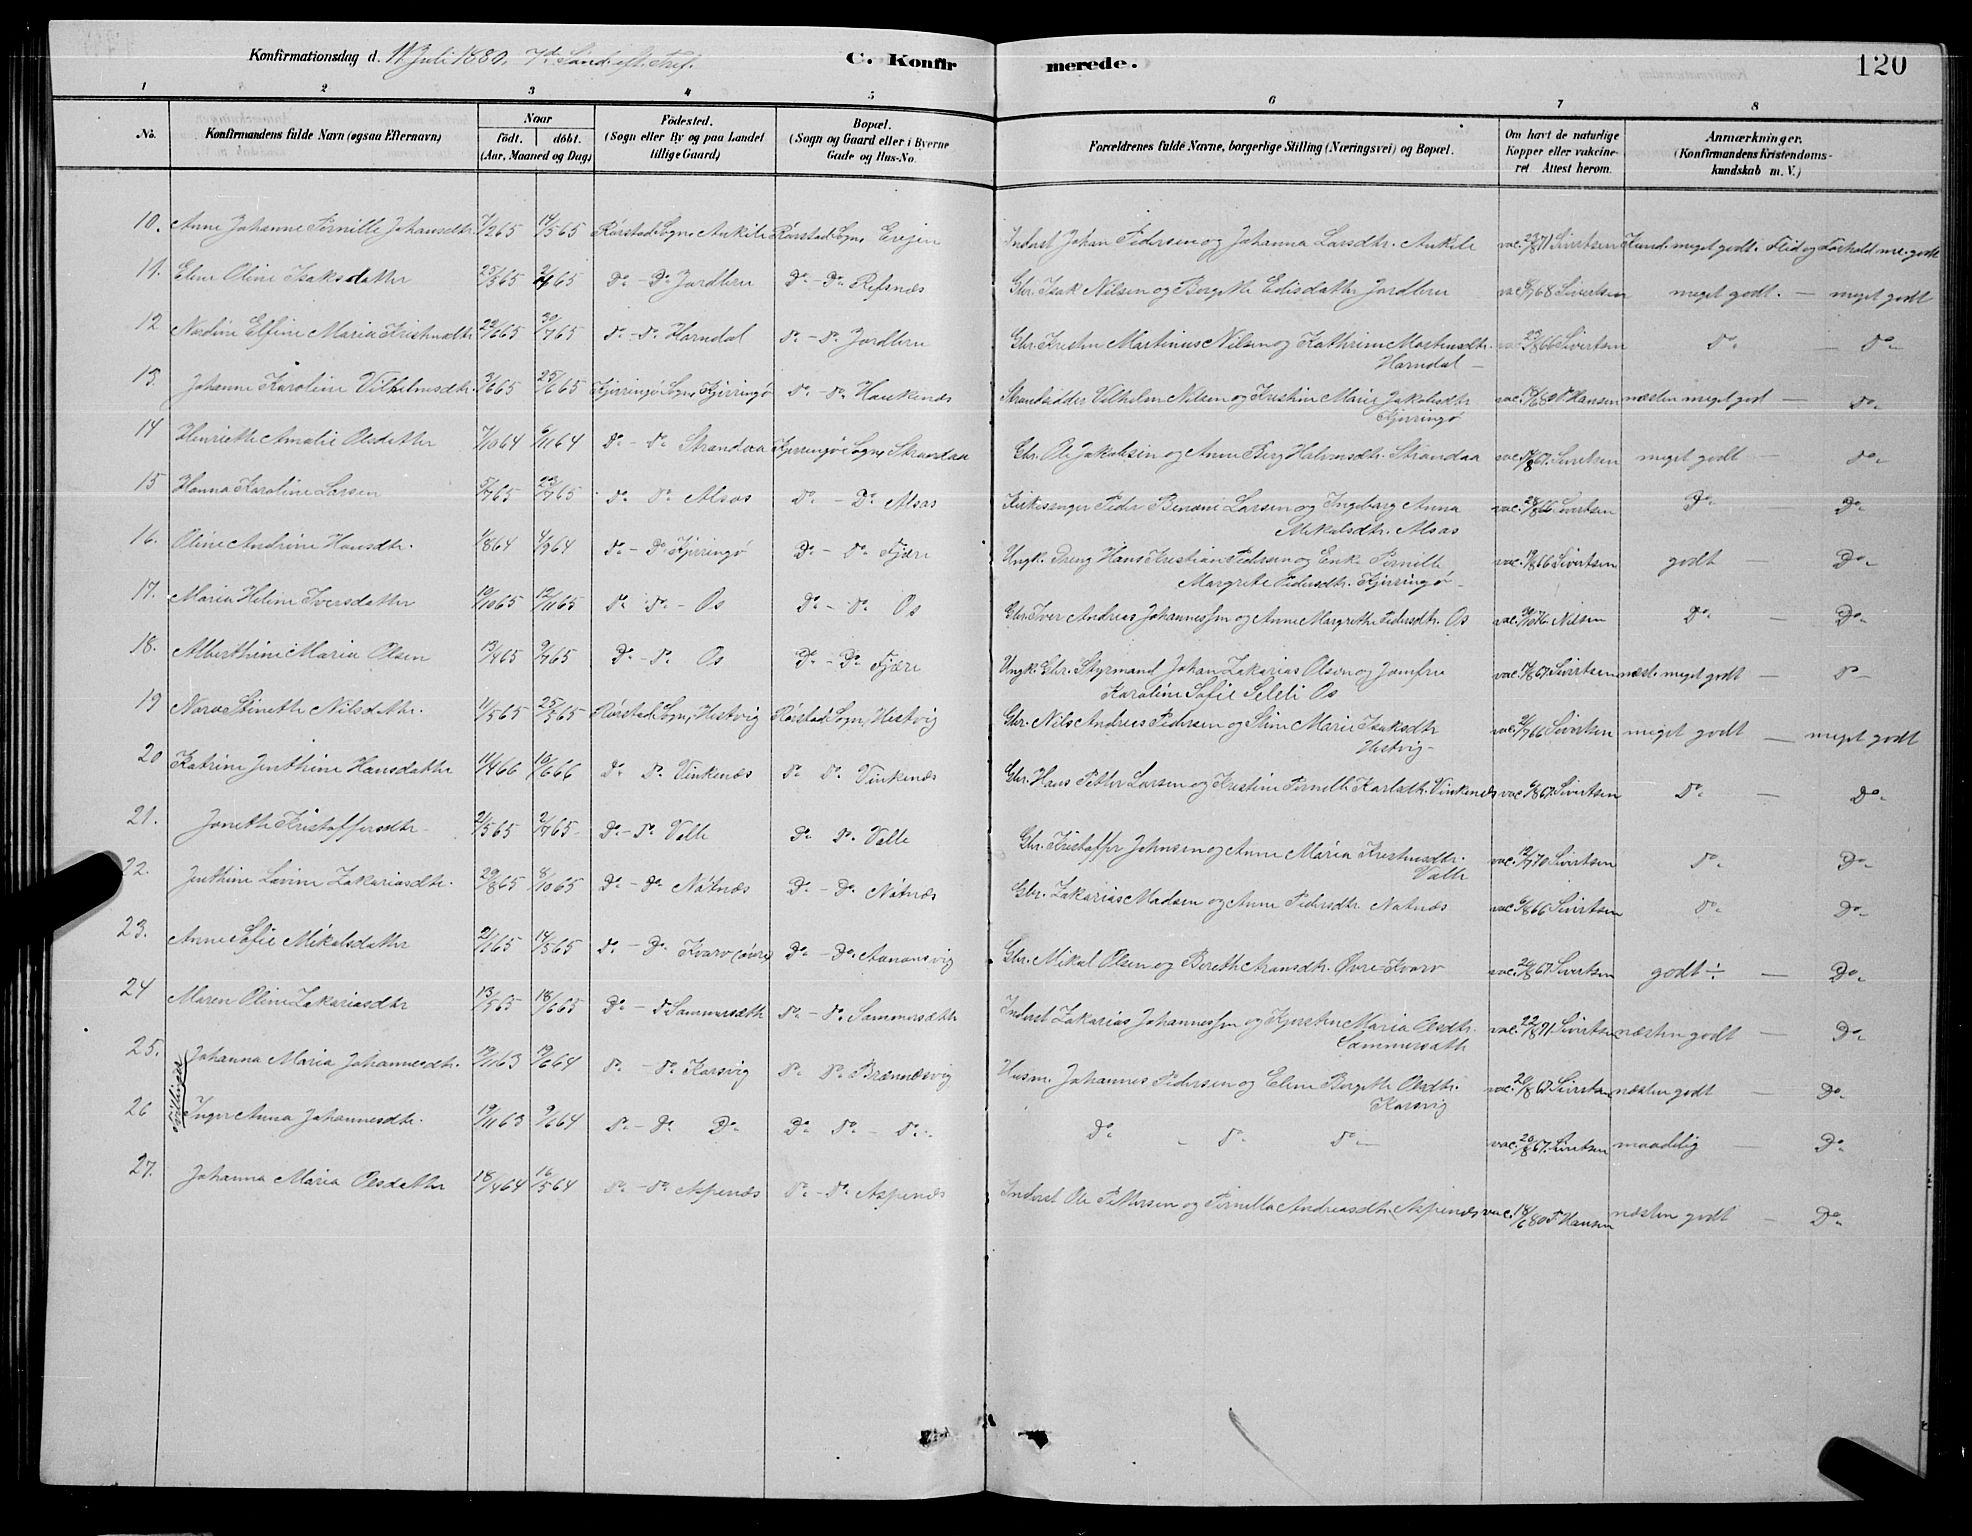 Konfirmationsdag d. 11 Juli 1880, 7de Sønd. eft. Tref. C. Konfirmerede. 120
1 2 3 4 5 6 7 8
No. Konfirmandens fulde Navn (ogsaa Efternavn) Naar født. døbt. (Aar, Maaned og Dag) Fødested. (Sogn eller By og paa Landet tillige Gaard) Bopæl. (Sogn og Gaard eller i Byerne Gade og Hus-No. Forældrenes fulde Navne, borgerlige Stilling (Næringsvei) og Bopæl. Om havt de naturlige Kopper eller vakcineret Attest herom. Anmærkninger. (Konfirmandens Kristendomskundskab m. V.)
10. Anne Johanne Pernille Johansdtr. 7/2 65 14/5 65 Rørstad Sogn, Ankile Rørstad Sogn, Erejen Inderst Johan Pedersen og Johanna Larsdtr. Ankile vac. 23/8 71 Sivertsen Kund. meget godt. Flid og Forhold me. godt
11. Elen Oline Isaksdatter 25/3 65 65 Do - Do Jordbru Do - Do Refsnæs Gbr. Isak Nilsen og Bergitte Edisdatter Jordbru vac. 68 Sivertsen meget godt. — meget godt
12 Nardine Elfine Maria Kristensdtr 29/6 65 30/7 65 Do - Do Horndal Do - Do Jordbru Gbr. Kristen Martinus Nilsen og Kathrine Mortensdtr. Horndal — vac. 23/8 66 Sivertsen Do — Do
13. Johanne Karoline Vilhelmsdtr. 3/6 65 25/6 65 Kjerringø Sogn, Kjerringø Do - Do Haukenæs Strandsidder Vilhelm Nilsen og Kristine Marie Jakobsdtr Kjerringø vac. 80 P. Hansen næsten meget godt — Do
14 Henriette Amalie Olsdatter 7/10 64 6/11 64 Do - Do Strandaa Kjerringø Sogn, Strandaa Gbr. Ole Jakobsen og Anne Berg Halvorsdtr. Strandaa vac. 67. Sivertsen meget godt — Do
15 Hanna Karoline Larsen 5/7 65 23/7 65 Do Do Alsos Do - Do Alsos Kirkesanger Peder Benoni Larsen og Ingeborg Anna Mikalsdtr. Alsos vac. 28/8 66 Sivertsen Do Do
16. Oline Andrine Hansdtr. 1/8 64 4/9 64 Do - Do Kjerringø Do - Do Fjære Ungk. Dreng Hans Kristian Pedersen og Enke Pernille Margrete Pedersdtr. Kjerringø — vac. 19/8 66 Sivertsen godt — Do
17. Maria Helene Iversdatter 10/10 65 12/11 65 Do Do - Os Do - Do Os Gbr. Iver Andreas Johannessen og Anne Margrethe Pedersdtr. Os vac. 76 Nilsen Do — Do
18. Alberthine Maria Olsen 13/4 65 9/7 65 Do - Do Os Do - Do Fjære Ungk. Gbr. Styrmand Johan Zakarias Olsen og Jomfru Karoline Sofie Selli Os vac. 67. Sivertsen næst. meget godt — Do
19 Nora Stinette Nilsdatr. 11/5 65 25/5 65 Rørstad Sogn, Hestvig Rørstad Sogn, Hestvig Gbr. Nils Andreas Pedersen og Stine Marie Isaksdtr Hestvig — vac. 2/7 66 Sivertsen meget godt — meget godt
20 Katrine Jenthine Hansdatter 11/4 66 10/6 66 Do Do Vinkenæs Do Do Vinkenæs Gbr. Hans Petter Larsen og Kristine Pernille Karlsdtr. Vinkenæs vac. 6/8 67. Sivertsen Do — Do
21. Jonette Kristoffersdtr — 21/5 65 2/7 65 Do - Do Valle Do Do Valle Gbr. Kristoffer Johnsen og Anne Maria Kristensdtr. Valle vac. 12/7 70 Sivertsen Do Do
22. Jenthine Lovine Zakariasdtr. 29/8 65 8/10 65 Do - Do Nøtnæs Do - Do Nøtnæs Gbr. Zakarias Madsen og Anne Pedersdtr. Nøtnæs vac. 6/8 66 Sivertsen Do Do
23. Anne Sofie Mikalsdatter 21/1 65 14/5 65 Do - Do Kvarv (øvre) Do - Do Aanonsvig Gbr. Mikal Olsen og Berette Aronsdtr. Øvre Kvarv vac. 20/8 67. Sivertsen godt ÷ — Do
24 Maren Oline Zakariasdtr 13/5 65 18/6 65 Do - Do Sammersæth Do - Do Sammersæth Inderst Zakarias Johannessen og Kjersten Maria Olsdtr. Sammersæth vac. 22/8 71 Sivertsen næsten godt — Do
25. Johanna Maria Johannesdtr. 19/11 63 19/6 64 Do - Do Korsvig Do Do Brennesvig Husm. Johannes Pedersen og Elen Bergitte Olsdtr. Korsvig vac. 20/8 67 Sivertsen næsten godt — Do
Tvillinger
26 Inger Anna Johannesdtr. 19/11 63 64 Do - Do Do Do Do - Do Do - Do Do — vac. 20/8 67. Sivertsen maadelig — Do
27. Johanna Maria Olsdatter 18/4 64 16/5 64 Do - Do Aspenæs Do - Do Aspenæs Inderst Ole Pettersen og Pernella Andreasdtr. Aspenæs vac. 18/6 80 P. Hansen næsten godt — Do